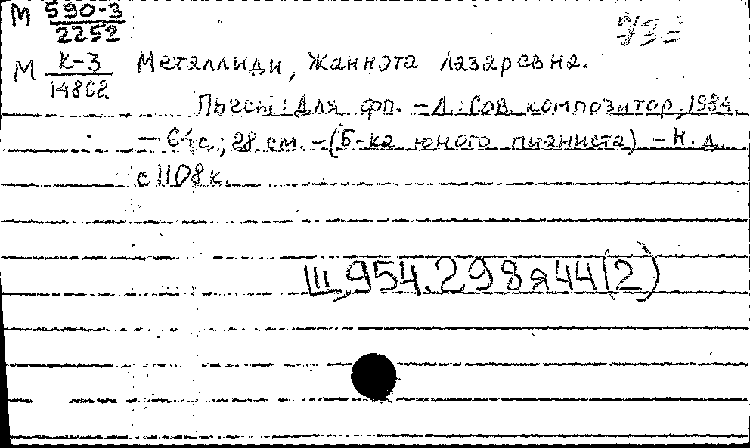 М 590-3
2252
М К-3 Металлиди, Жаннэта Лазаревна.
14862
Пьесы: Для фп. – Л.: Сов. композитор, 1984.
– 64с.; 28 см. – (Б-ка юного пианиста) – Н. д.
с 1108 к.
Щ 954.298я44(2)